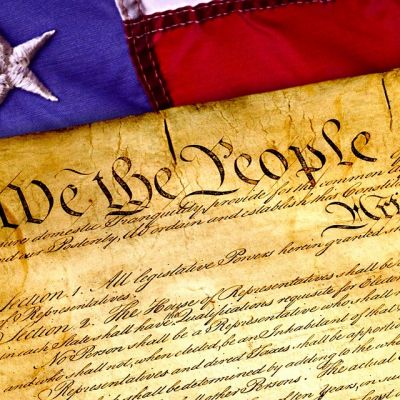 We the People
insure domestic Tranquility, provide for the common
and our Posterity, do ordain and establish this Constitu
Arti
Section 1. All legislative Powers herein granted
of Representatives.
Section 2. The House of Representatives shall be
in each State shall have Qualifications requisite for Elec
No Person shall be a Representative who shall
and who shall not, when elected, be an Inhabitant of that
Representatives and direct Taxes shall be apport
shall be determined by adding to the wh
other Persons. The actual
of ten Years, in su
at Least